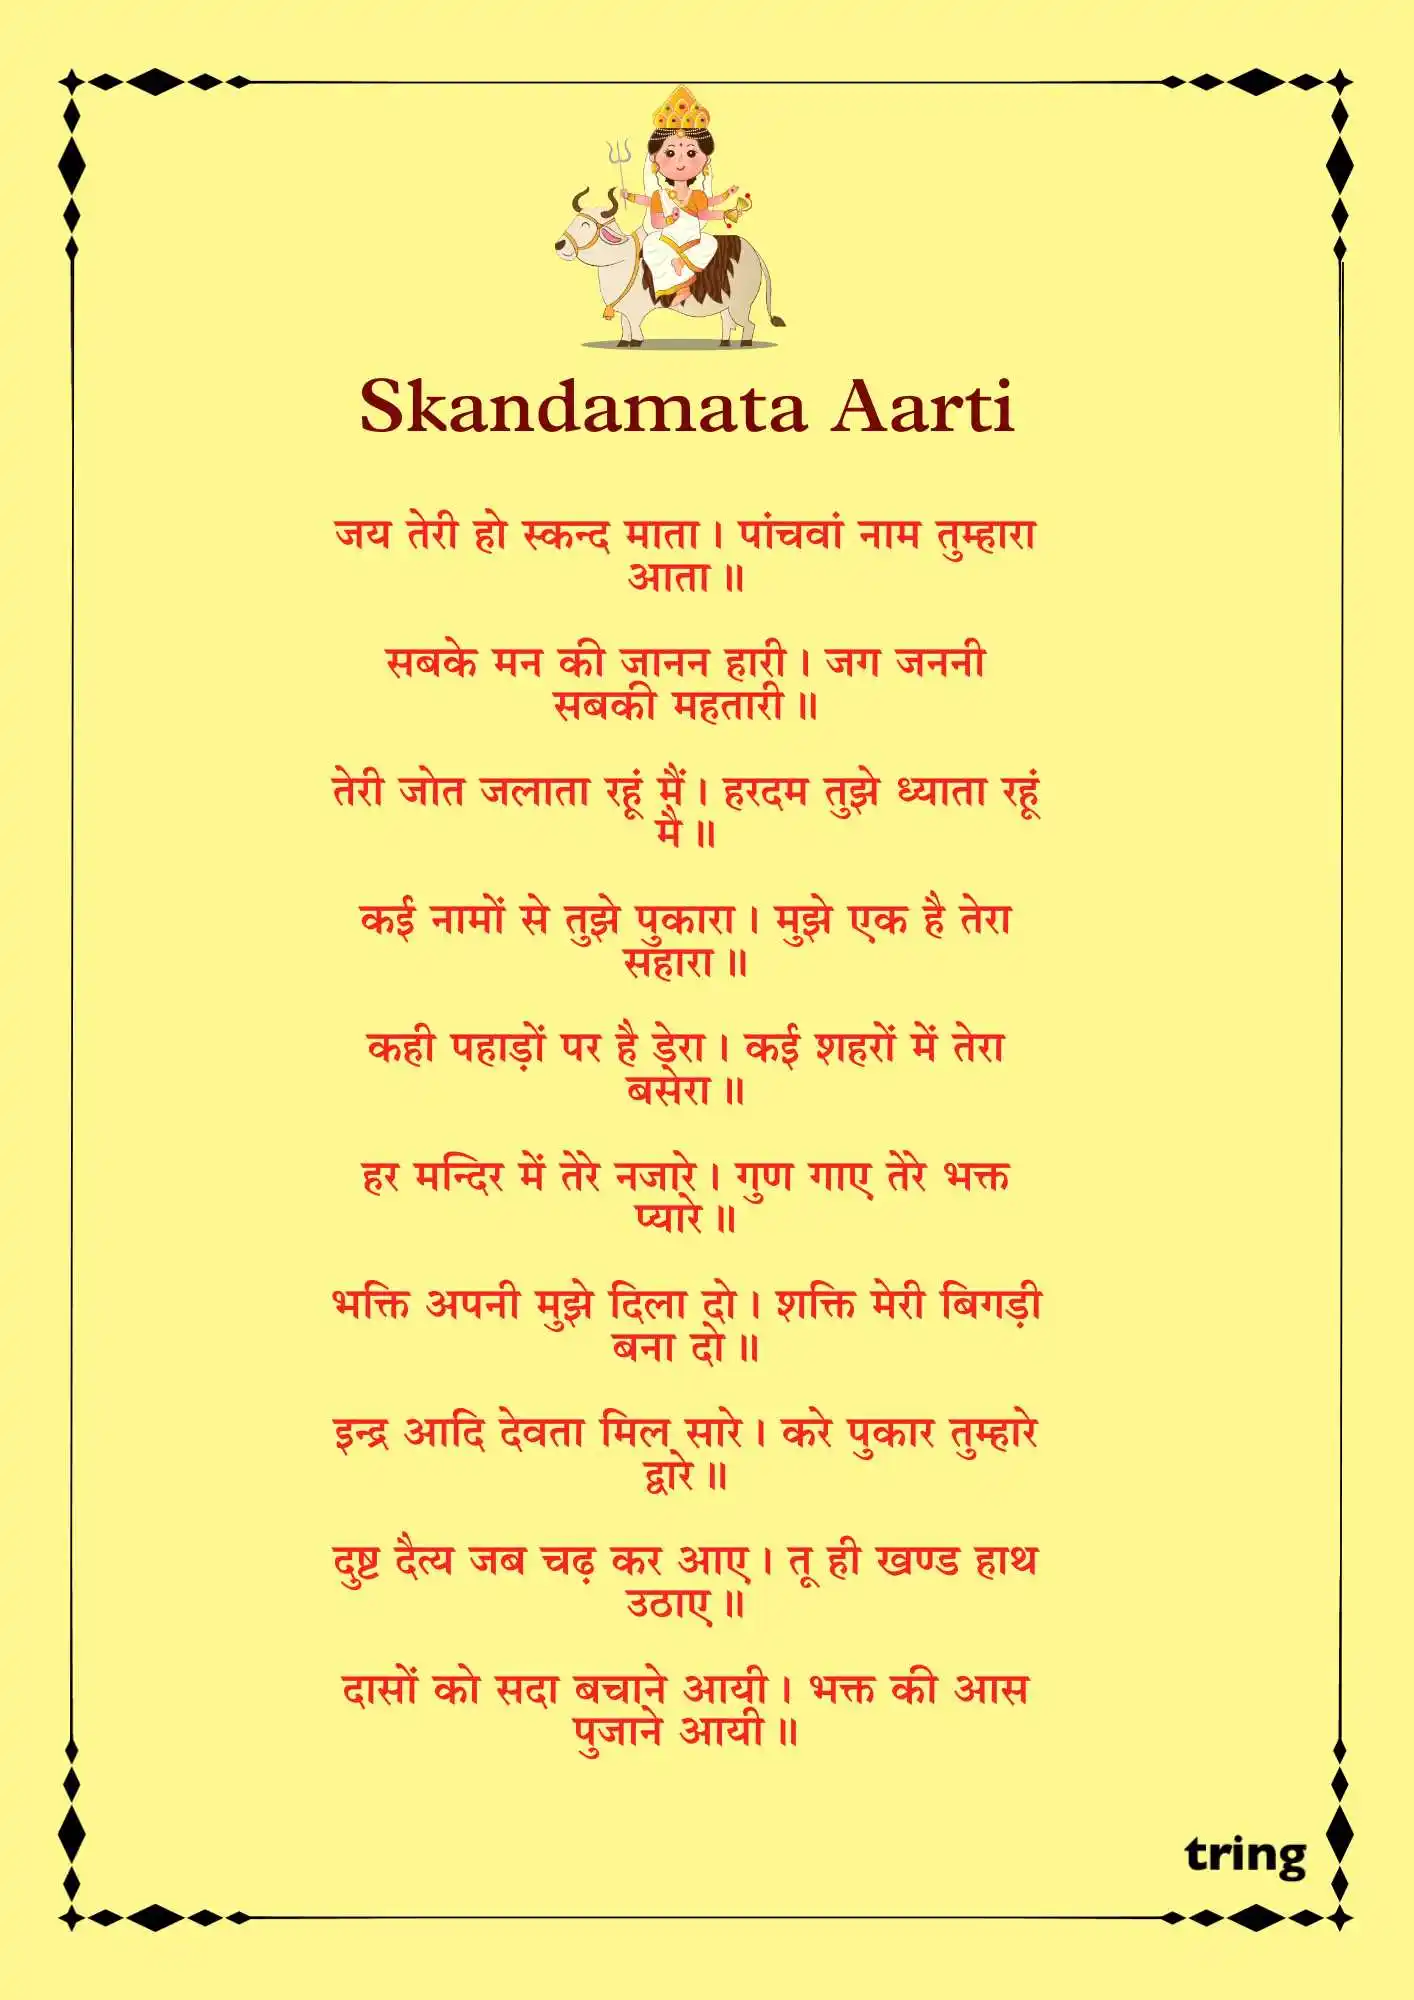 Skandamata Aarti
जय तेरी हो स्कन्द माता। पांचवां नाम तुम्हारा
आता॥
सबके मन की जानन हारी। जग जननी
सबकी महतारी॥
तेरी जोत जलाता रहूं मैं। हरदम तुझे ध्याता रहूं
मै॥
कई नामों से तुझे पुकारा। मुझे एक है तेरा
सहारा॥
कही पहाड़ों पर है डेरा। कई शहरों में तेरा
बसेरा॥
हर मन्दिर में तेरे नजारे। गुण गाए तेरे भक्त
प्यारे॥
भक्ति अपनी मुझे दिला दो। शक्ति मेरी बिगड़ी
बना दो॥
इन्द्र आदि देवता मिल सारे। करे पुकार तुम्हारे
द्वारे॥
दुष्ट दैत्य जब चढ़ कर आए। तू ही खण्ड हाथ
उठाए॥
दासों को सदा बचाने आयी। भक्त की आस
पुजाने आयी॥
tring